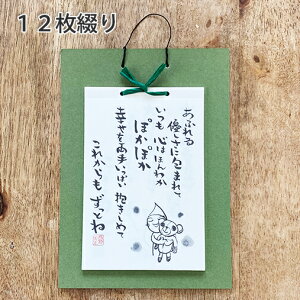 12枚綴り
あふれる
優しさに包まれて
いつも 心はほんわか
ぽかぽか
幸せを両手いっぱい 抱きしめて
これからも ずっとね